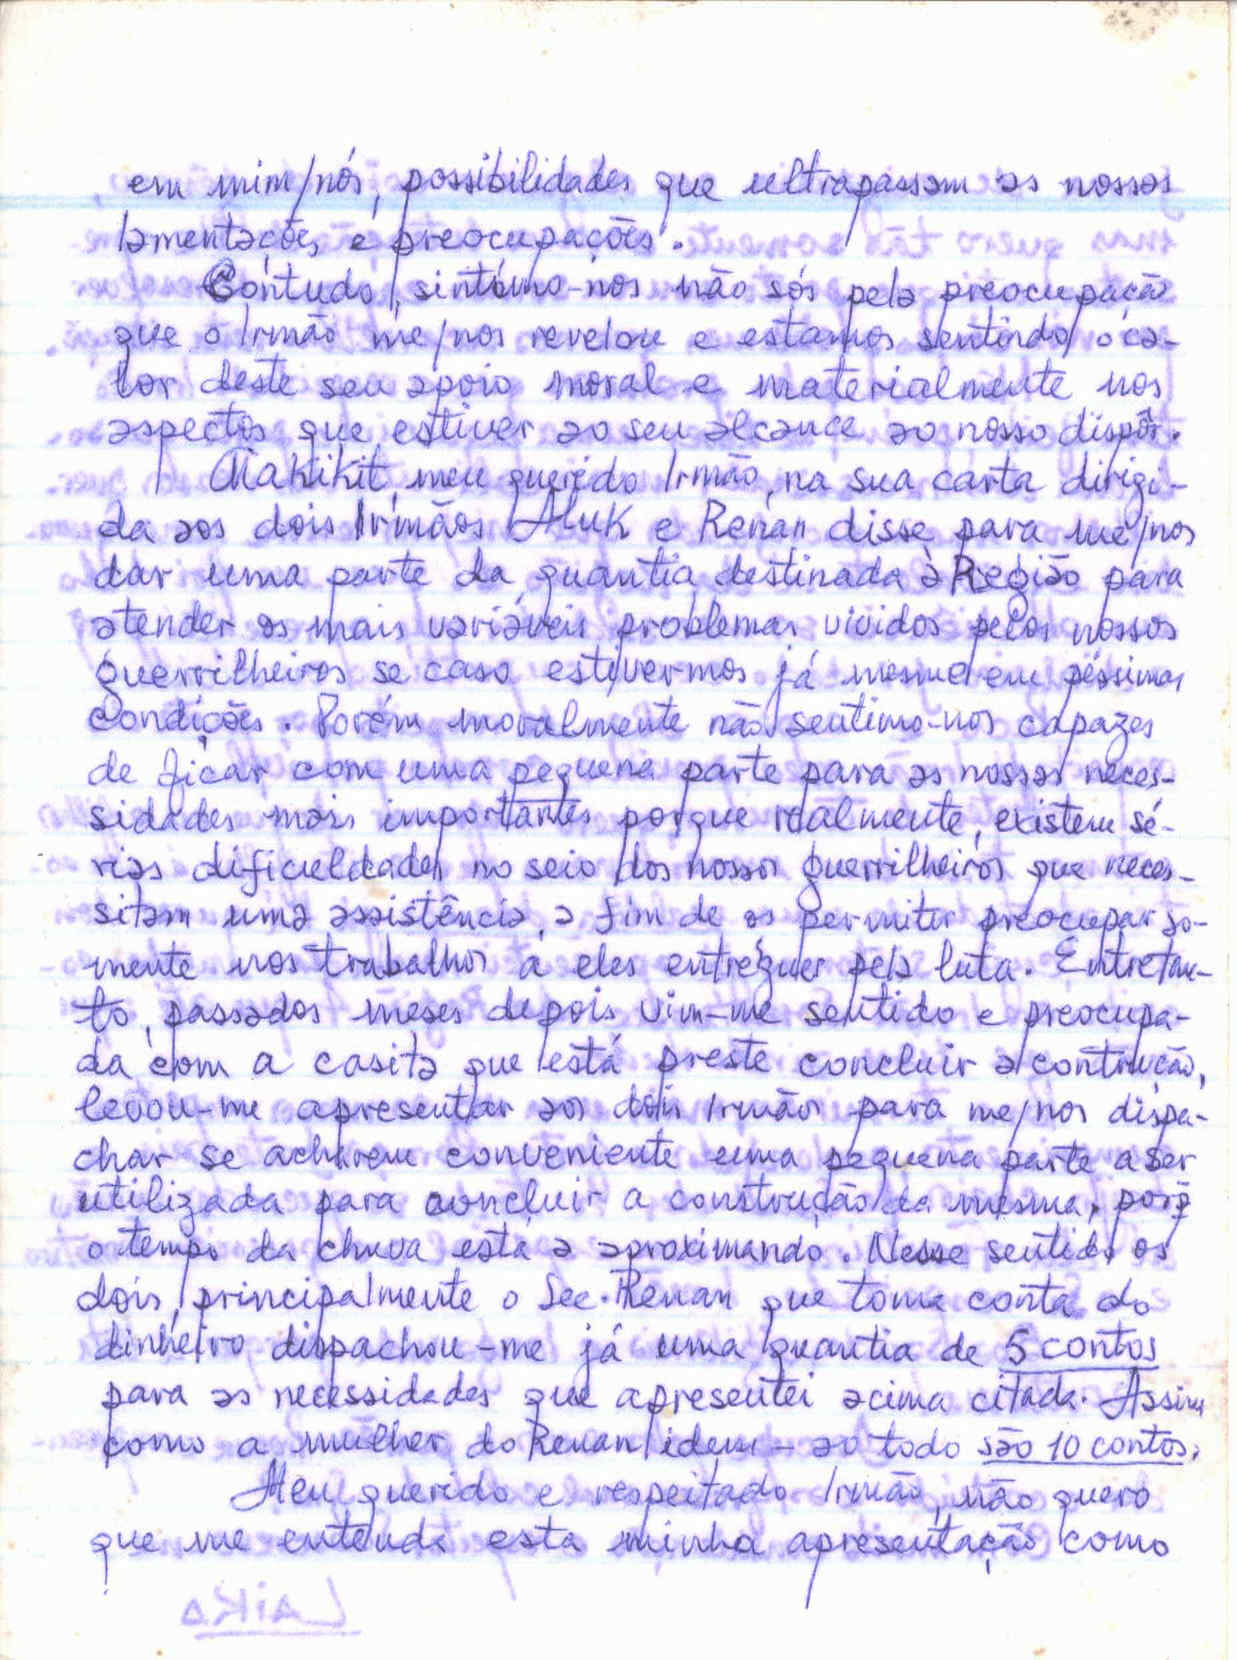 em mim/nós, possibilidades que ultrapassam as nossas
lamentações e preocupações.
Contudo, sintômo-nos não sós pela preocupação
que o Irmão me/nos revelou e estamos sentindo o ca-
lor deste seu apoio moral e materialmente nos
aspectos que estiver ao seu alcance ao nosso dispôr.
Makikit, meu querido Irmão, na sua carta dirigi-
da aos dois Irmãos Aluk e Renan disse para me/nos
dar uma parte da quantia destinada à Região para
atender os mais variáveis problemas vividos pelos nossos
guerrilheiros se caso estivermos já mesmo em péssimas
condições. Porém moralmente não sentimo-nos capazes
de ficar com uma pequena parte para as nossas neces-
sidades mais importantes porque realmente, existem sé-
rias dificuldades no seio dos nossos guerrilheiros que neces-
sitam uma assistência, a fim de os permitir preocupar so-
mente nos trabalhos a eles entregues pela luta. Entretan-
to, passados meses depois vim-me sentido e preocupa-
da com a casita que está preste concluir a contrução,
levou-me apresentar aos dois Irmãos para me/nos dispa-
char se acharem conveniente uma pequena parte a ser
utilizada para concluir a construção da mesma, porq̃
o tempo da chuva está a aproximando. Nesse sentido os
dois, principalmente o Sec. Renan que toma conta do
dinheiro dispachou-me já uma quantia de 5 contos
para as necessidades que apresentei acima citada. Assim
como a mulher do Renan idem - ao todo são 10 contos.
Meu querido e respeitado Irmão, não quero
que me entenda esta minha apresentação como
Laika